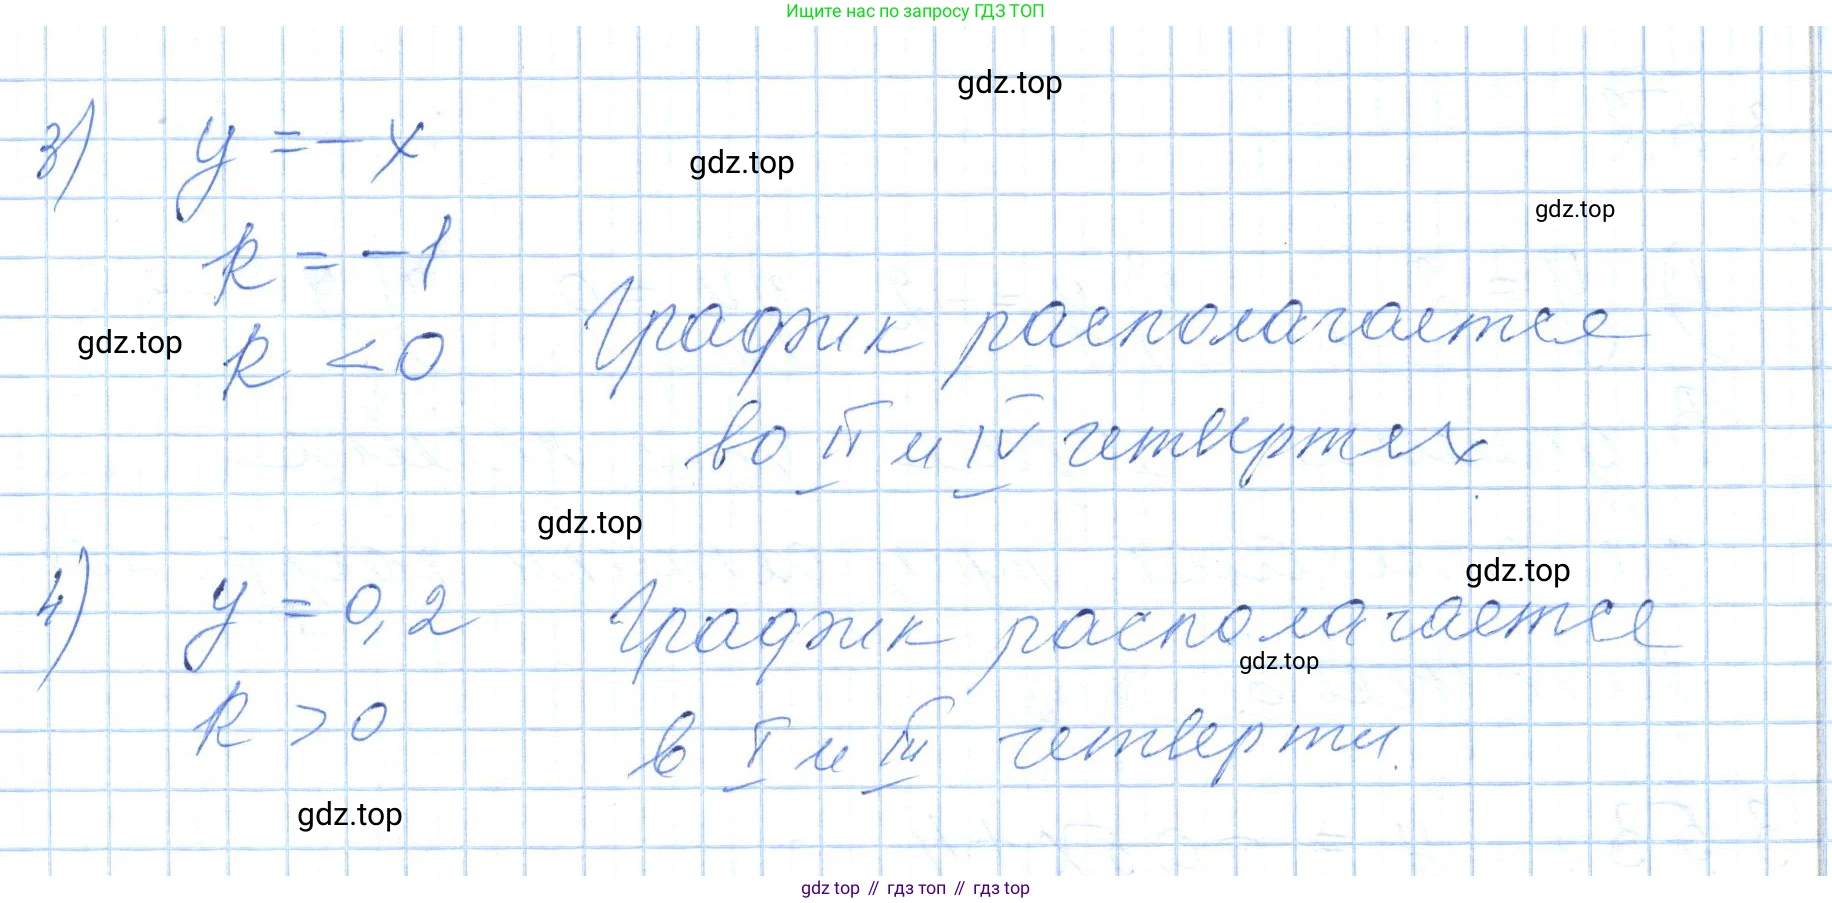 Ищите нас по запросу ГДЗ ТОП
gdz.top
3) y = - x
gdz.top
gdz.top
k = -1
График располагается
gdz.top
k < 0
во II и IV четвертях.
gdz.top
gdz.top
4) y = 0,2 График располагается
gdz.top
k > 0 в I и III четверти.
gdz.top
gdz top // гдз топ // гдз top